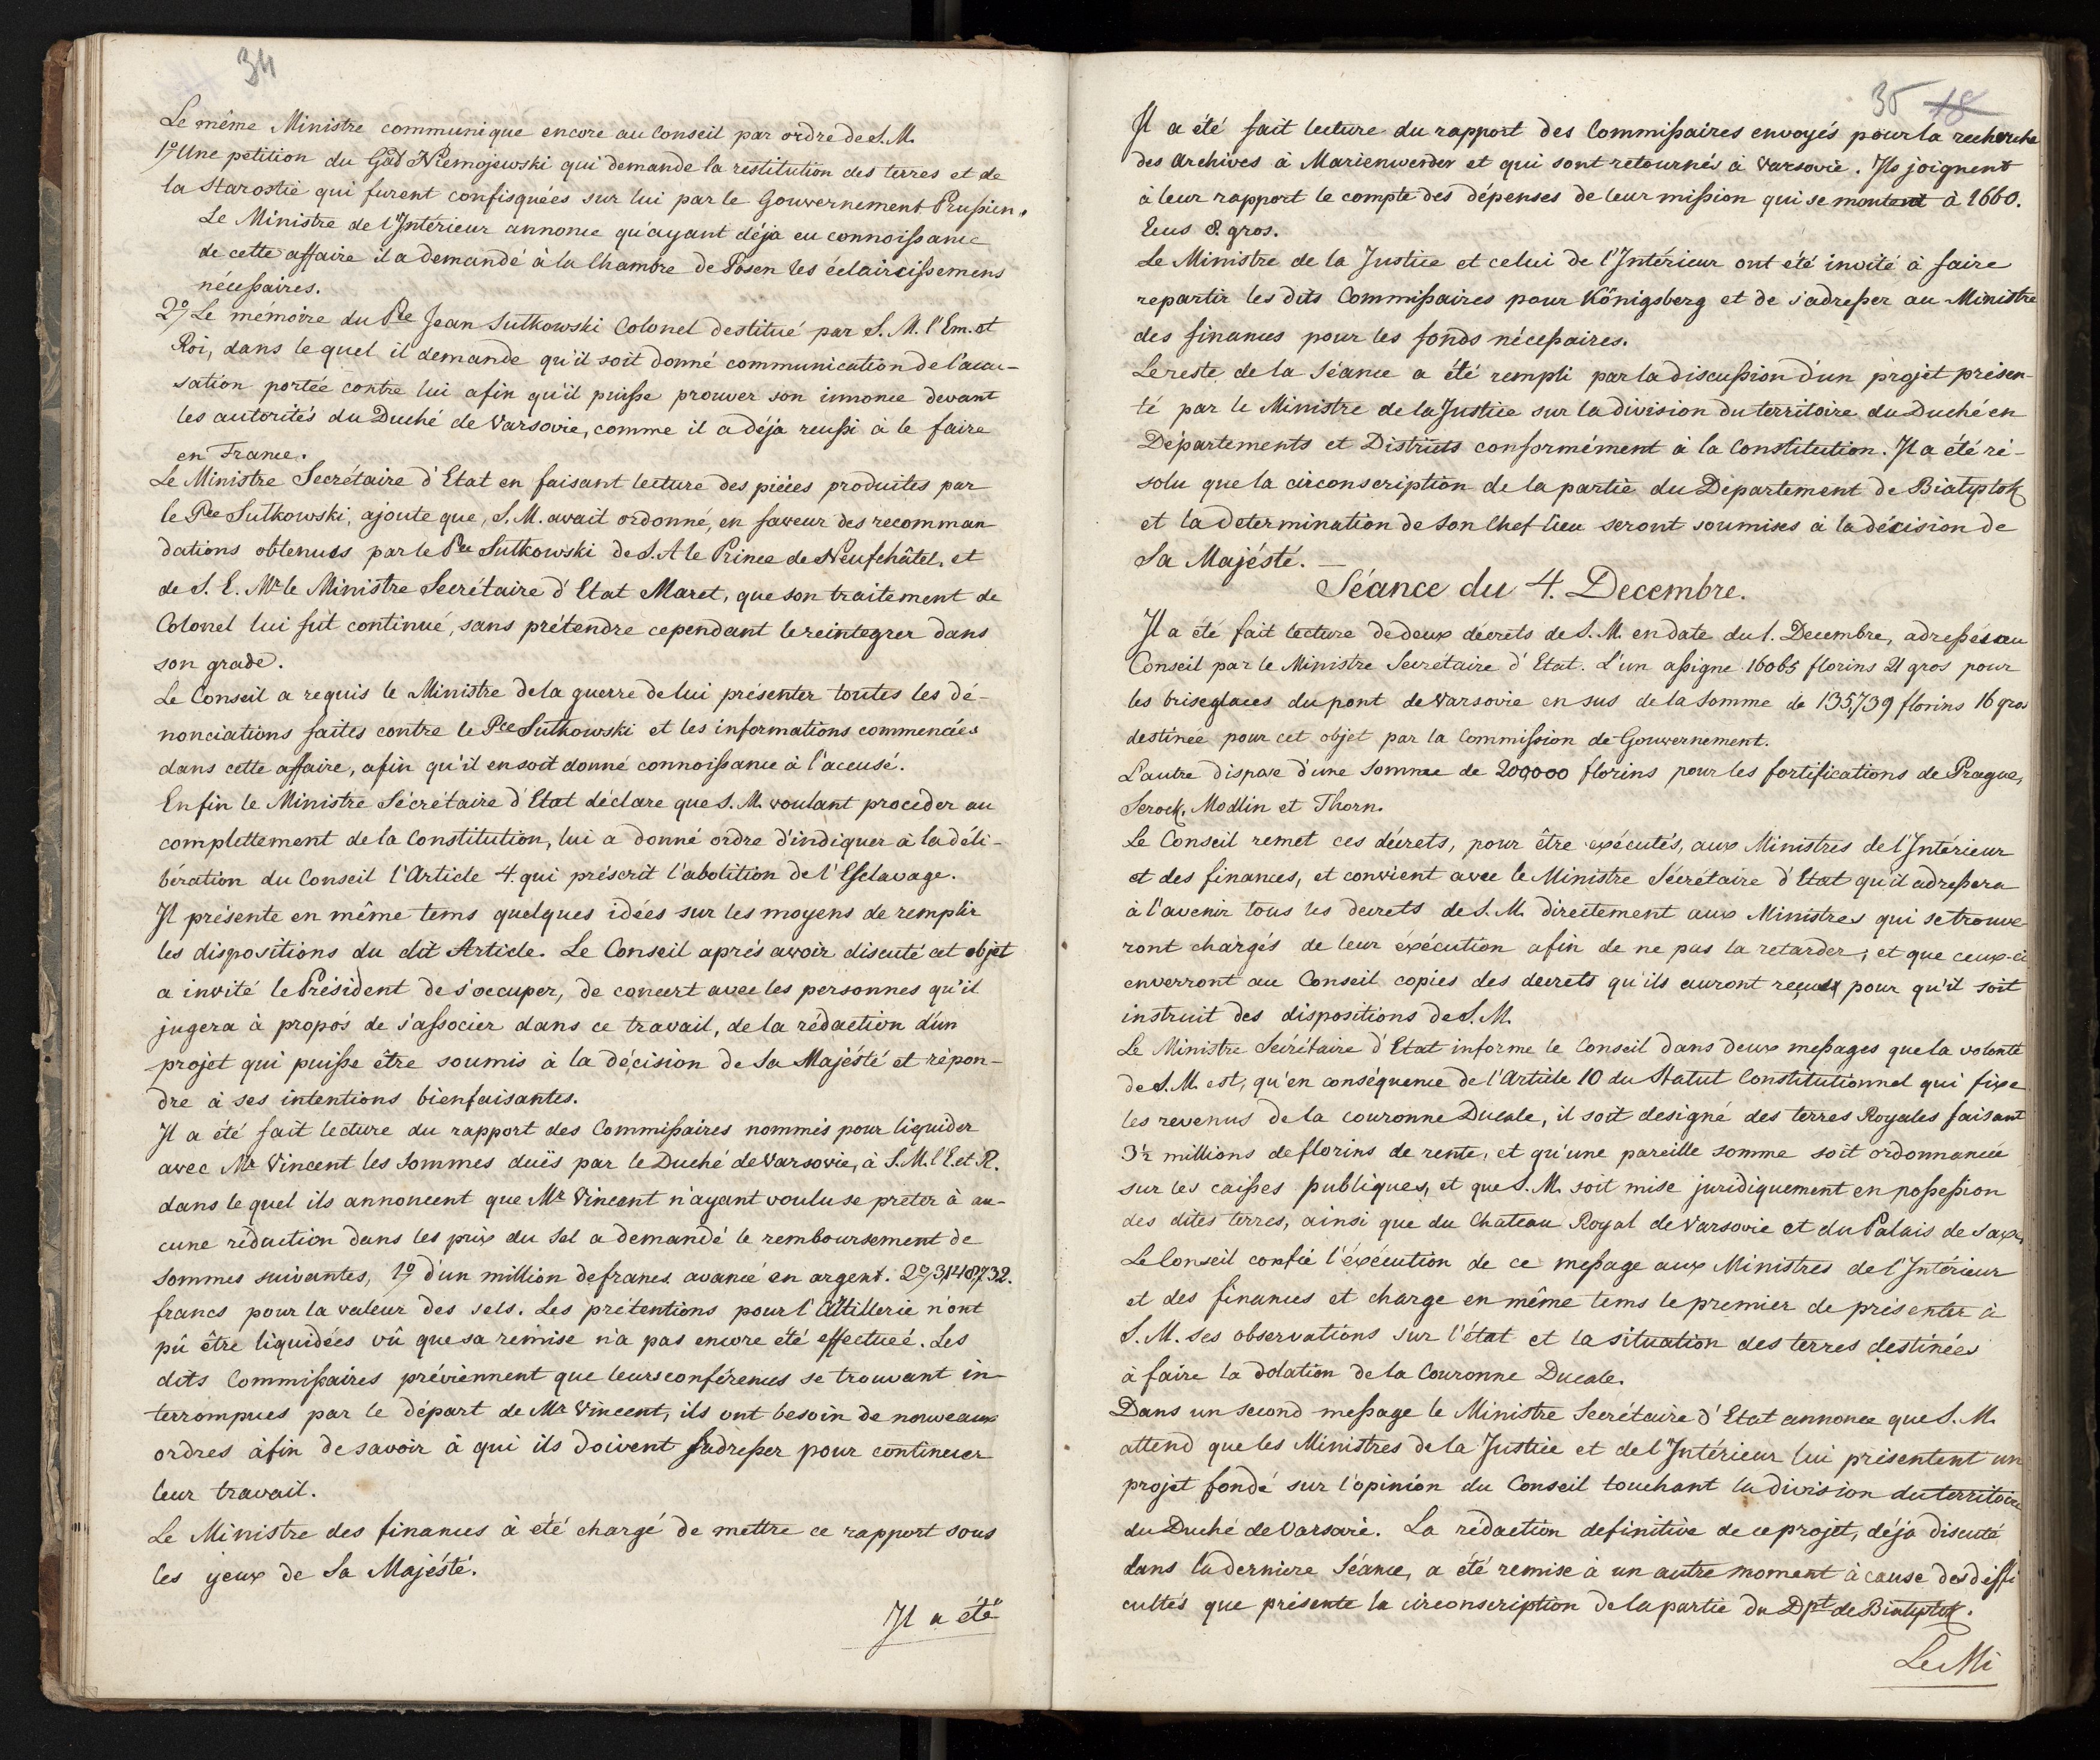 34
Le même Ministre communique encore au Conseil par ordre de S. M.
1º Une petition du Gãd Niemojewski qui demande la restitution des terres et de
la Starostie qui furent confisquées sur lui par le Gouvernement Prussien.
Le Ministre de l'Intérieur annonce qu'ayant déja eu connoissance
de cette affaire il a demandé à la Chambre de Posen les éclaircissemens
nécessaires.
2º Le mémoire du Pce Jean Sutkowski Colonel destitué par S. M. l'Em. et
Roi, dans lequel il demande qu'il soit donné communication de l'accu-
sation portée contre lui afin qu'il puisse prouver son innonce devant
les autorités du Duché de Varsovie, comme il a déja reussi à le faire
en France.
Le Ministre Secrétaire d'Etat en faisant lecture des pièces produites par
le Pce Sutkowski, ajoute que, S. M. avait ordonné, en faveur des recomman
dations obtenues par le Pce Sutkowski de S. A le Prince de Neufchâtel, et
de S. E. Mr le Ministre Secrétaire d'Etat Maret, que son traitement de
Colonel lui fût continué, sans prétendre cependant le reintegrer dans
son grade.
Le Conseil a requis le Ministre de la guerre de lui présenter toutes les dé-
nonciations faites contre le Pce Sutkowski et les informations commencées
dans cette affaire, afin qu'il en soit donné connoissance à l'accusé.
Enfin le Ministre Sécrétaire d'Etat déclare que S. M. voulant proceder au
complettement de la Constitution, lui a donné ordre d'indiquer à la déli-
bération du Conseil l'Article 4. qui préscrit l'abolition de l'Esclavage.
Il présente en même tems quelques idées sur les moyens de remplir
les dispositions du dit Article. Le Conseil aprés avoir discuté cet objet
a invité le Président de s'occuper, de concert avec les personnes qu'il
jugera à propós de s'associer dans ce travail, de la rédaction d'un
projet qui puisse être soumis à la décision de Sa Majésté et répon-
dre à ses intentions bienfaisantes.
Il a été fait lecture du rapport des Commissaires nommés pour liquider
avec Mr Vincent les sommes duës par le Duché de Varsovie, à S. M. l'E. et R.
dans lequel ils annoncent que Mr Vincent n'ayant voulu se preter à au-
cune réduction dans les prix du Sel a demandé le remboursement de
sommes suivantes, 1º d'un million de francs avancé en argent. 2º 3,148,732.
francs pour la valeur des sels. Les prétentions pour l'Artillerie n'ont
pû être liquidées vû que sa remise n'a pas encore été effectueé. Les
dits Commissaires préviennent que leurs conférences se trouvant in-
terrompues par le départ de Mr Vincent, ils ont besoin de nouveaux
ordres àfin de savoir à qui ils doivent s'adresser pour continuer
leur travail.
Le Ministre des finances à été chargé de mettre ce rapport sous
les yeux de Sa Majésté.
Il a été
35 18
Il a été fait lecture du rapport des Commissaires envoyés pour la recherche
des Archives à Marienwerder et qui sont retournés à Varsovie. Ils joignent
à leur rapport le compte des dépenses de leur mission qui se montent à 1660.
Ecus 8. gros.
Le Ministre de la Justice et celui de l'Intérieur ont été invité à faire
repartir les dits Commissaires pour Königsberg et de s'adresser au Ministre
des finances pour les fonds nécessaires.
Le reste de la Séance a été rempli par la discussion d'un projet présen-
té par le Ministre de la Justice sur la division du territoire du Duché en
Départements et Districts conformément à la Constitution. Il a été ré-
solu que la circonscription de la partie du Département de Biatystok
et la determination de son Chef lieu seront soumises à la décision de
Sa Majésté. —
Séance du 4. Decembre.
Il a été fait lecture de deux décrets de S. M. en date du 1. Decembre, adressés au
Conseil par le Ministre Secrétaire d'Etat. L'un assigne 16065 florins 21 gros pour
les briseglaces du pont de Varsovie en sus de la somme de 135,739 florins 16 gros
destinée pour cet objet par la Commission de Gouvernement.
L'autre dispose d'une somme de 200,000 florins pour les fortifications de Prague,
Serock, Modlin et Thorn.
Le Conseil remet ces décrets, pour être exécutés, aux Ministres de l'Intérieur
et des finances, et convient avec le Ministre Sécrétaire d'Etat qu'il adressera
à l'avenir tous les decrets de S. M. directement aux Ministres qui se trouve
ront chargés de leur éxécution afin de ne pas la retarder; et que ceux-ci
enverront au Conseil copies des decrets qu'ils auront reçus pour qu'il soit
instruit des dispositions de S. M.
Le Ministre Secrétaire d'Etat informe le Conseil dans deux messages que la volonté
de S. M. est, qu'en conséquence de l'Article 10 du Statut Constitutionnel qui fixe
les revenus de la couronne Ducale, il soit designé des terres Royales faisant
3½ millions de florins de rente, et qu'une pareille somme soit ordonnancée
sur les caisses publiques, et que S. M. soit mise juridiquement en possession
des dites terres, ainsi que du Chateau Royal de Varsovie et du Palais de Saxe,
Le Conseil confie l'éxécution de ce message aux Ministres de l'Intérieur
et des finances et charge en même tems le premier de présenter à
S. M. ses observations sur l'état et la situation des terres destinées
à faire la dotation de la Couronne Ducale.
Dans un second message le Ministre Secrétaire d'Etat annonce que S. M.
attend que les Ministres de la Justice et de l'Intérieur lui présentent un
projet fondé sur l'opinion du Conseil touchant la division du territoire
du Duché de Varsovie. La rédaction definitive de ce projet, déja discuté
dans la derniere Séance, a été remise à un autre moment à cause des diffi
cultés que présente la circonscription de la partie du Dpt de Biatystok.
Le Mi